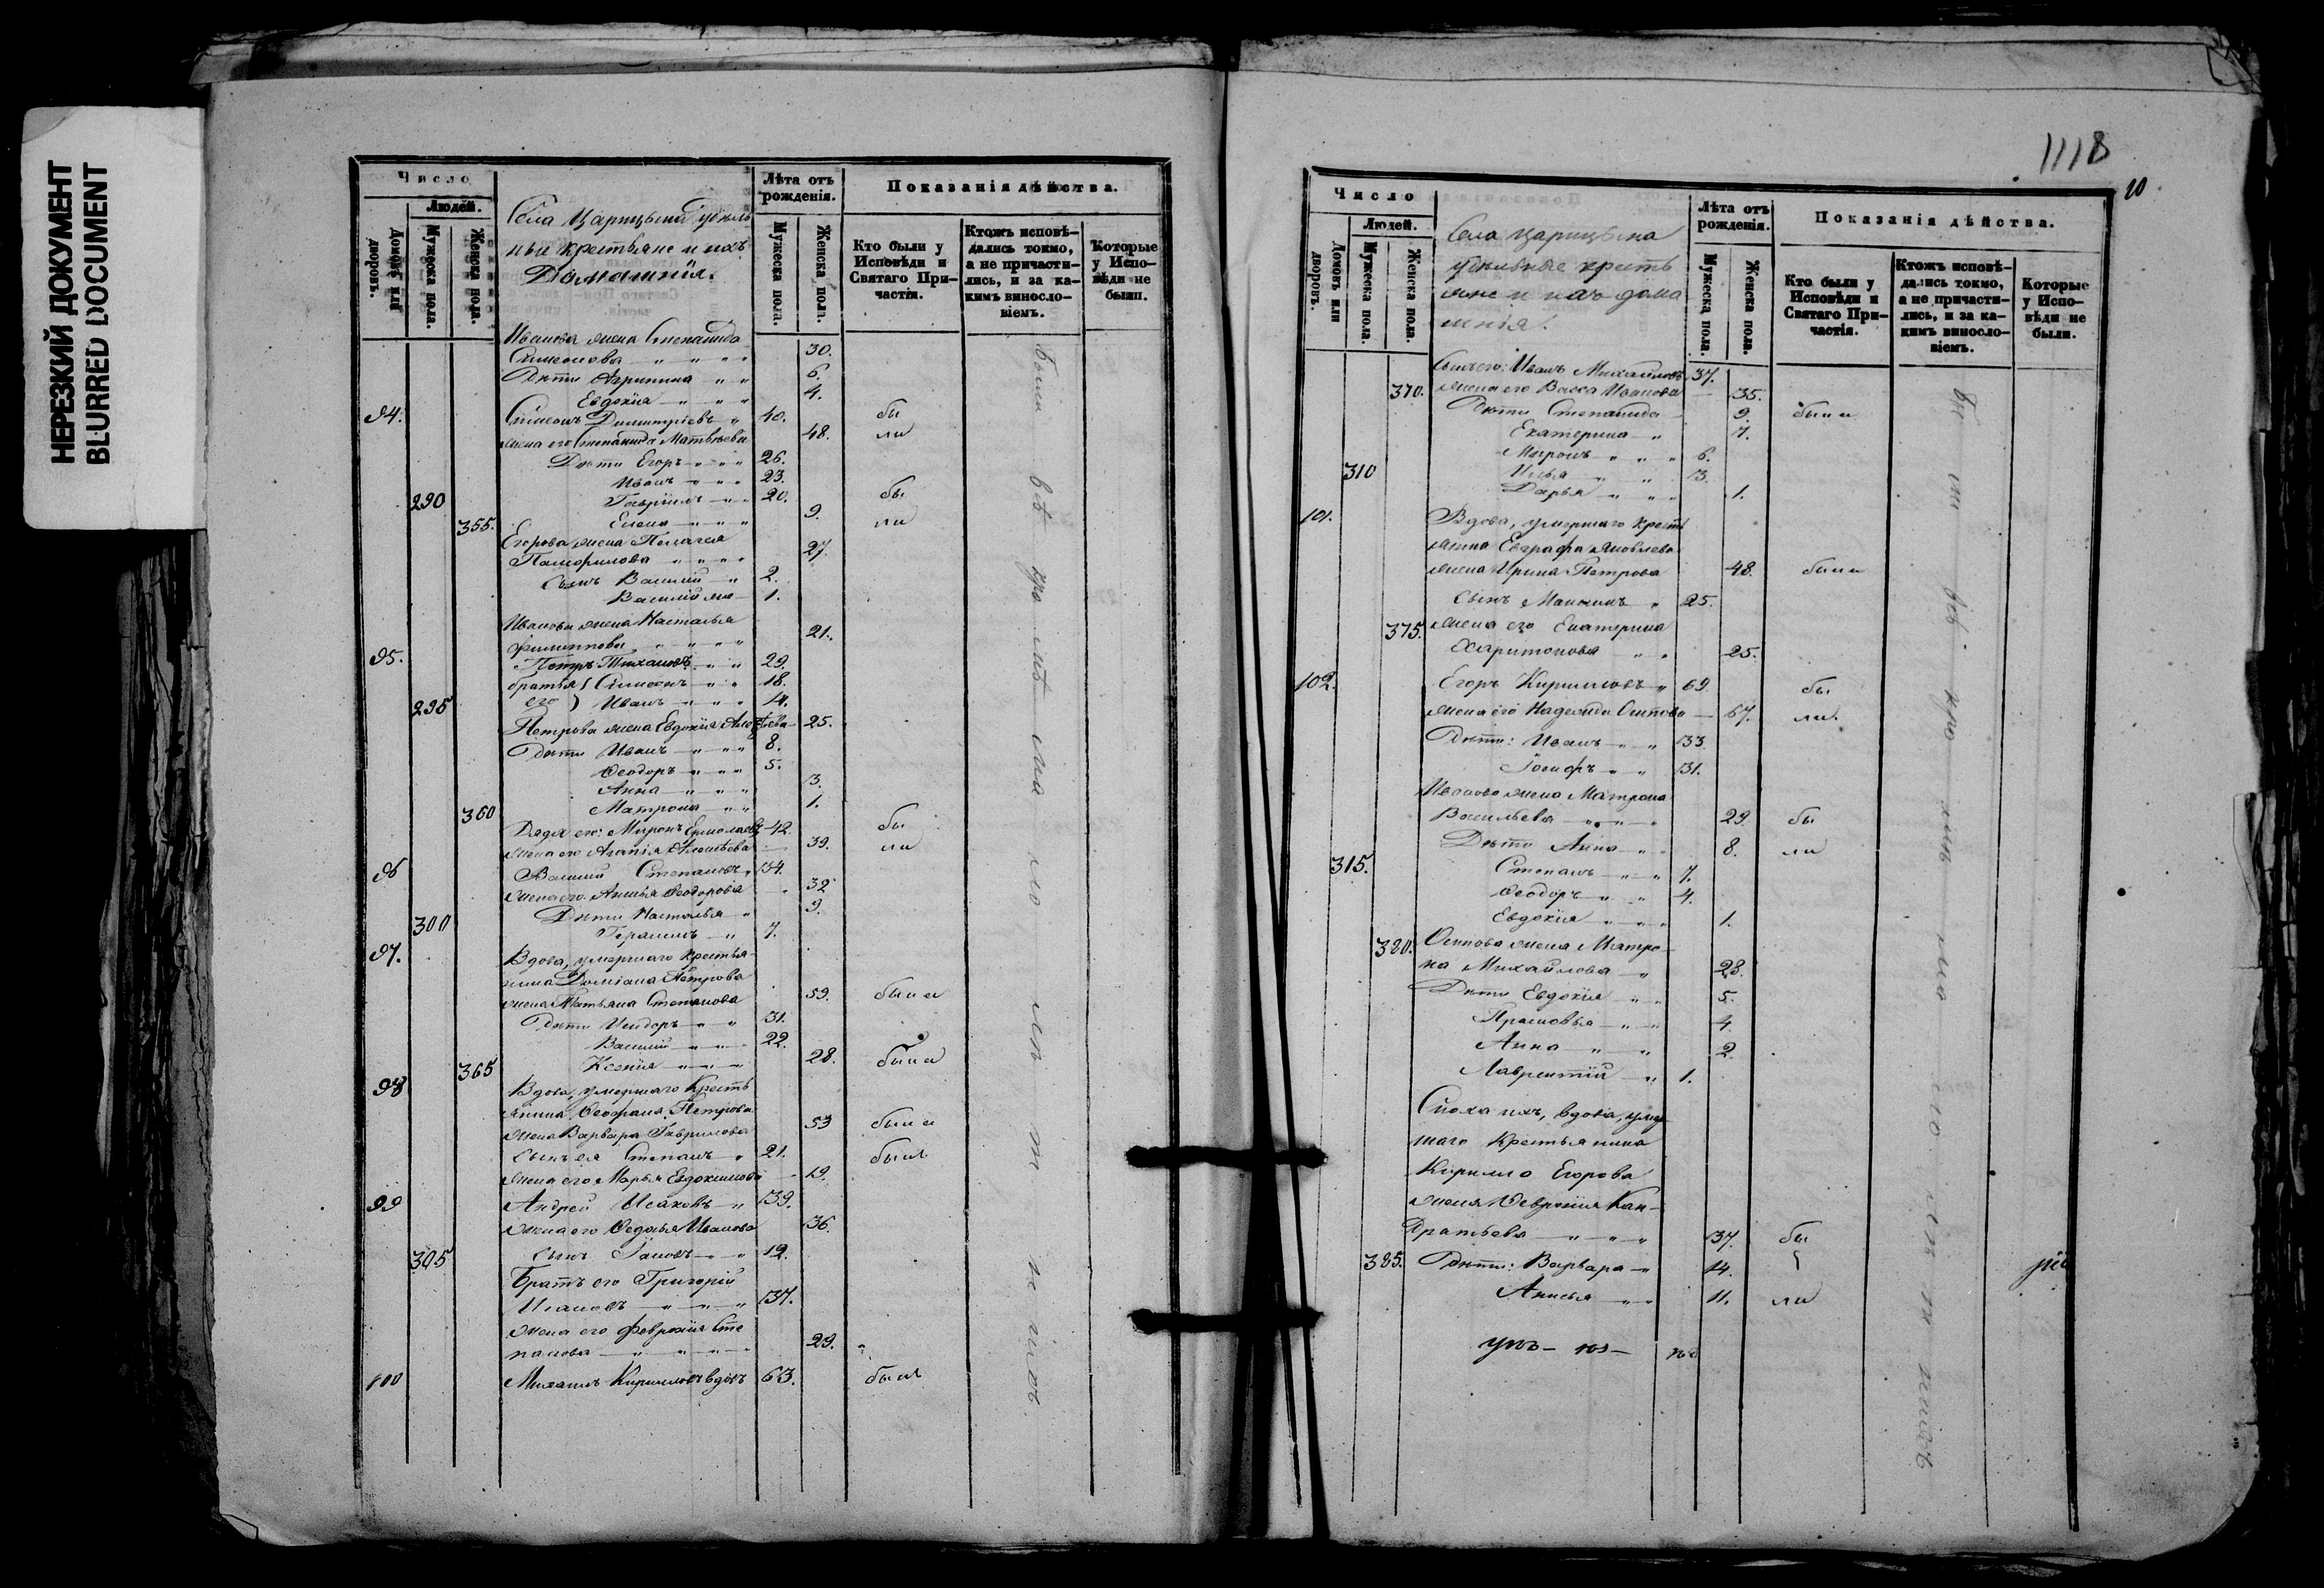 НЕРЕЗКИЙ ДОКУМЕНТ
BLURRED DOCUMENT
Число
Людей.
Домовъ или дворовъ.
Мужеска пола.
Женска пола.
Села Царицына удѣль
ные крестьяне и ихъ
Домашнія.
Лѣта отъ рожденія.
Мужеска пола.
Женска пола.
Показанія дѣйства.
Кто были у Исповѣди и Святаго Причастія.
Ктожъ исповѣдались токмо, а не причастились, и за какимъ винословіемъ.
Которые у Исповѣди не были.
Иванова жена Степанида
Симеонова 30.
Дѣти Агрипина 6.
Евдокія 4.
94. Симеонъ Димитріевъ 40. бы
жена его Степанида Матвѣева 48. ли
Дѣти Егоръ 26.
Иванъ 23.
290 Гавріилъ 20. бы
355. Елена 9. ли
Егорова жена Пелагея
Памфилова 27.
Сынъ Василій 2.
Василій же 1.
Иванова жена Наталья
Филиппова 21.
95. Петръ 29.
братья Симеонъ 18.
295 его Иванъ 14.
Петрова жена Евдокія 25.
Дѣти Иванъ 8.
Ѳеодоръ 5.
Анна 3.
360 Матрона 1.
Дядя его: Миронъ Ермолаевъ 42 бы
жена его Агапія 39. ли
96 Василій Степановъ 34.
жена его Анисья Ѳеодорова 32
Дѣти Наталья 9.
300 Герасимъ 7.
97. Вдова, умершаго крестья-
нина Доміана Петрова
жена Татьяна Степанова 59. была
Дѣти Исидоръ 31.
Василій 22.
365 Ксенія 28. была
98 Вдова, умершаго Кресть
янина Ѳеофана Петрова
жена Варвара Гаврилова 53 была
Сынъ ея Степанъ 21. былъ
жена его Марья Евдокимова 19.
99 Андрей Исаковъ 39.
жена его Ѳедосья Иванова 36.
305 Сынъ Іаковъ 12.
Братъ его Григорій
Исаковъ 37.
жена его Февронія Сте
панова 29.
100 Михаилъ Кирилловъ вдовъ 63. былъ
1118
10
Число
Людей.
Домовъ или дворовъ.
Мужеска пола.
Женска пола.
Села Царицына
удѣльные кресть
яне и ихъ дома
шнія.
Лѣта отъ рожденія.
Мужеска пола.
Женска пола.
Показанія дѣйства.
Кто были у Исповѣди и Святаго Причастія.
Ктожъ исповѣдались токмо, а не причастились, и за какимъ винословіемъ.
Которые у Исповѣди не были.
Сынъ его: Иванъ Михайловъ 37.
370. жена его Васса Иванова 35.
Дѣти Степанида 9. были
Екатерина 7.
Миронъ 6.
310 Илья 3.
Дарья 1.
101. Вдова, умершаго кресть
янина Евграфа Яковлева
жена Ирина Петрова 48. была
Сынъ Максимъ 25.
375. жена его Екатерина
Харитонова 25.
102. Егоръ Кирилловъ 69. бы
жена его Надежда Осипова 67. ли.
Дѣти: Иванъ 33.
Іосифъ 31.
Иванова жена Матрона
Васильева 29. бы
Дѣти Анна 8. ли
315. Степанъ 7.
Ѳеодоръ 4.
Евдокія 1.
380. Осипова жена Матро-
на Михайлова 28.
Дѣти Евдокія 5.
Прасковья 4.
Анна 2.
Лаврентій 1.
Сноха ихъ, вдова, умер
шаго Крестьянина
Кирилла Егорова
жена Ѳевронія Кон-
дратьева 37. бы
385. Дѣти: Варвара 14.
Анисья 11. ли